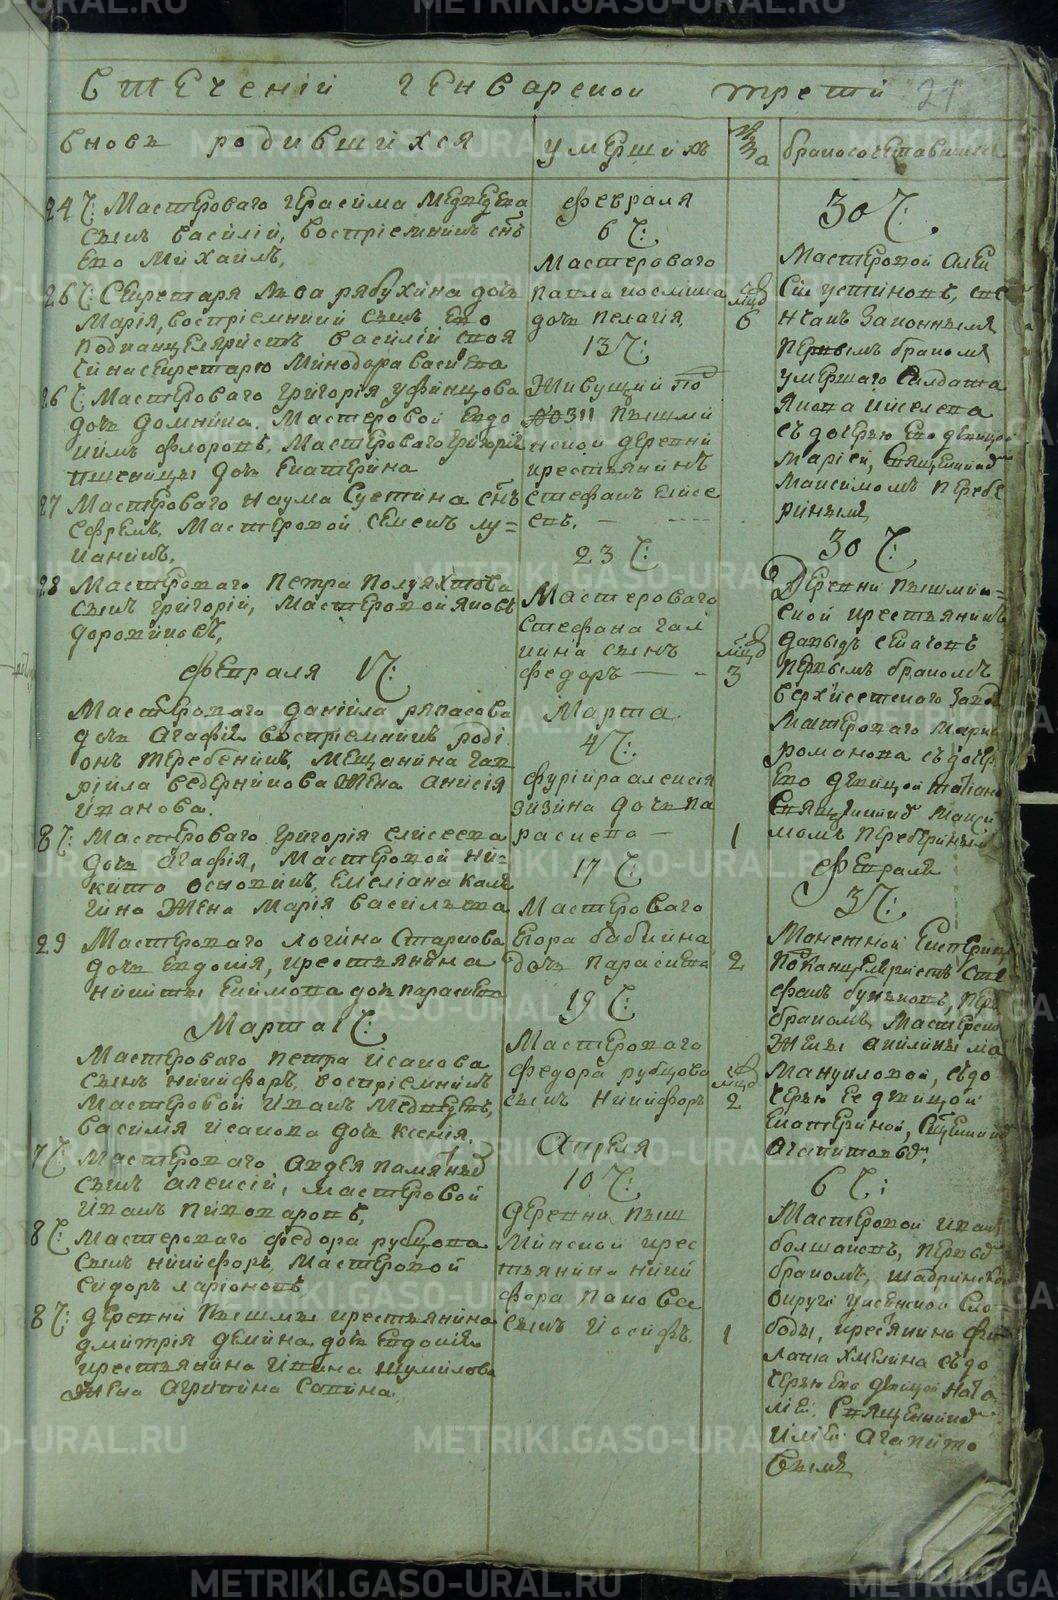 Втечений генварской трети 21
вновь родившихся
24 Ч: Мастероваго Герасима Медведева
сынъ Василій, восприемникъ снъ
Ево Михаилъ,
26 Ч: Секретаря Льва Рябухина дочь
Марія, восприемники сынъ Ево
подканцеляристъ Василий
секретаря Минодора Васильева
26 Ч: Мастероваго Григорія Уфинцова
дочь Домника. Мастеровой Евдо
кимъ Флоровъ, Мастероваго Григорія
Пшеницы дочь Екатерина
27 Мастероваго Наума Суетина снъ
Ефремъ, Мастеровой Семенъ Лу=
канинъ,
28 Мастероваго Петра Полуяхтова
сынъ Григорій, Мастеровой Яковъ
Дорофиовъ,
Февраля 1 Ч:
Мастероваго Даніила Ряпасова
дочь Агафія восприемникъ Роді
онъ Теребенинъ, Мещанина Гав
ріила Ведерникова Жена Анисія
Иванова.
8 Ч: Мастероваго Григорія Елисеева
дочь Агафія, Мастеровой Ни=
кита Основинъ, Емеліана Калу
гина Жена Марія Васильева
29 Мастероваго Логина Старкова
дочь Евдокия, крестьянина
Никиты Екимова дочь Парасковья
Марта 1 Ч:
Мастероваго Петра Исакова
сынъ Никифоръ, восприемникъ
Мастеровой Иванъ Медведевъ,
Василія Исакова дочь Ксенія.
7 Ч: Мастероваго Андрея Памятныхъ
сынъ Алексій, мастеровой
Иванъ Пивоваровъ,
8 Ч: Мастероваго Федора Рубцова
сынъ Никифоръ, Мастеровой
Сидоръ Ларіоновъ
8 Ч: Деревни Пышмы крестьянина
Дмитрія Демина дочь Евдокия
крестьянина Ивана Шумилова
Жена Агрипина Савина
умершихъ
Февраля
6 Ч:
Мастероваго
Павла Космина
дочь Пелагія, 6
13 Ч:
Живущий по
Пышми
нской деревни
крестьянинъ
Стефанъ Елисе
евъ,
23 Ч:
Мастероваго
Стефана Гал
кина сынъ
Федоръ — 3
Марта
4 Ч:
Алексія
Зизина дочь Па
раскева — 1
17 Ч:
Мастероваго
Егора Бабкина
дочь Парасковья 2
19 Ч:
Мастероваго
Федора Рубцова
сынъ Никифоръ 2
Апреля
10 Ч:
деревни Пыш
минской крес
тьянина Ники
фора Панова
сынъ Иосифъ 1
бракосочетавшихся
30 Ч:
Мастеровой Алек
сій Устиновъ,
нчанъ Законнымъ
первымъ бракомъ
умершаго Салдата
Якова Киселева
съ дочерью Ево девицею
Марией, Священникомъ
Максимомъ Перебе
ринымъ
30 Ч:
Деревни Пышмин=
ской крестьянинъ
Давыдъ Стагонъ
первымъ бракомъ
Верхисетского Завода
Мастероваго Марка
Романова съ дочерью
Ево девицей Татіано
Священникомъ Макси
момъ Перебринымъ
Февраля
3 Ч:
Монетной Експедиции
Подканцеляристъ Сте
фанъ Буньковъ, перв
бракомъ, Мастерской
Жены Акилины Ма
Мануиловой, съ до
черью ее девицой
Екатериной, Священникомъ
Агапитовымъ
6 Ч:
Мастеровой Иванъ
Болшаковъ, первымъ
бракомъ, Шадринской
округи Уксенской Сло
боды, кресянина Фи
лата Хмелина съ до
черью Ево девицой Ната
ліей, Священникомъ
Иліей Агапито
вымъ